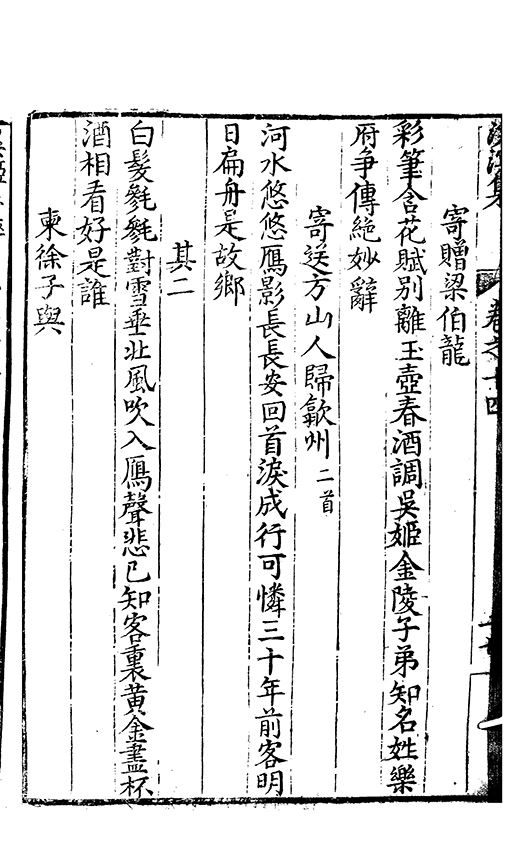 寄贈梁伯龍
彩筆含花賦別離玉壺春酒調吳姬金陵子弟知名姓樂
府爭傳絶妙辭
寄送方山人歸歙州二首
河水悠悠鴈影長長安回首淚成行可憐三十年前客明
日扁舟是故鄉
其二
白髮毿毿對雪垂壯風吹入鴈聲悲已知客裏黄金盡杯
酒相看好是誰
柬徐子與